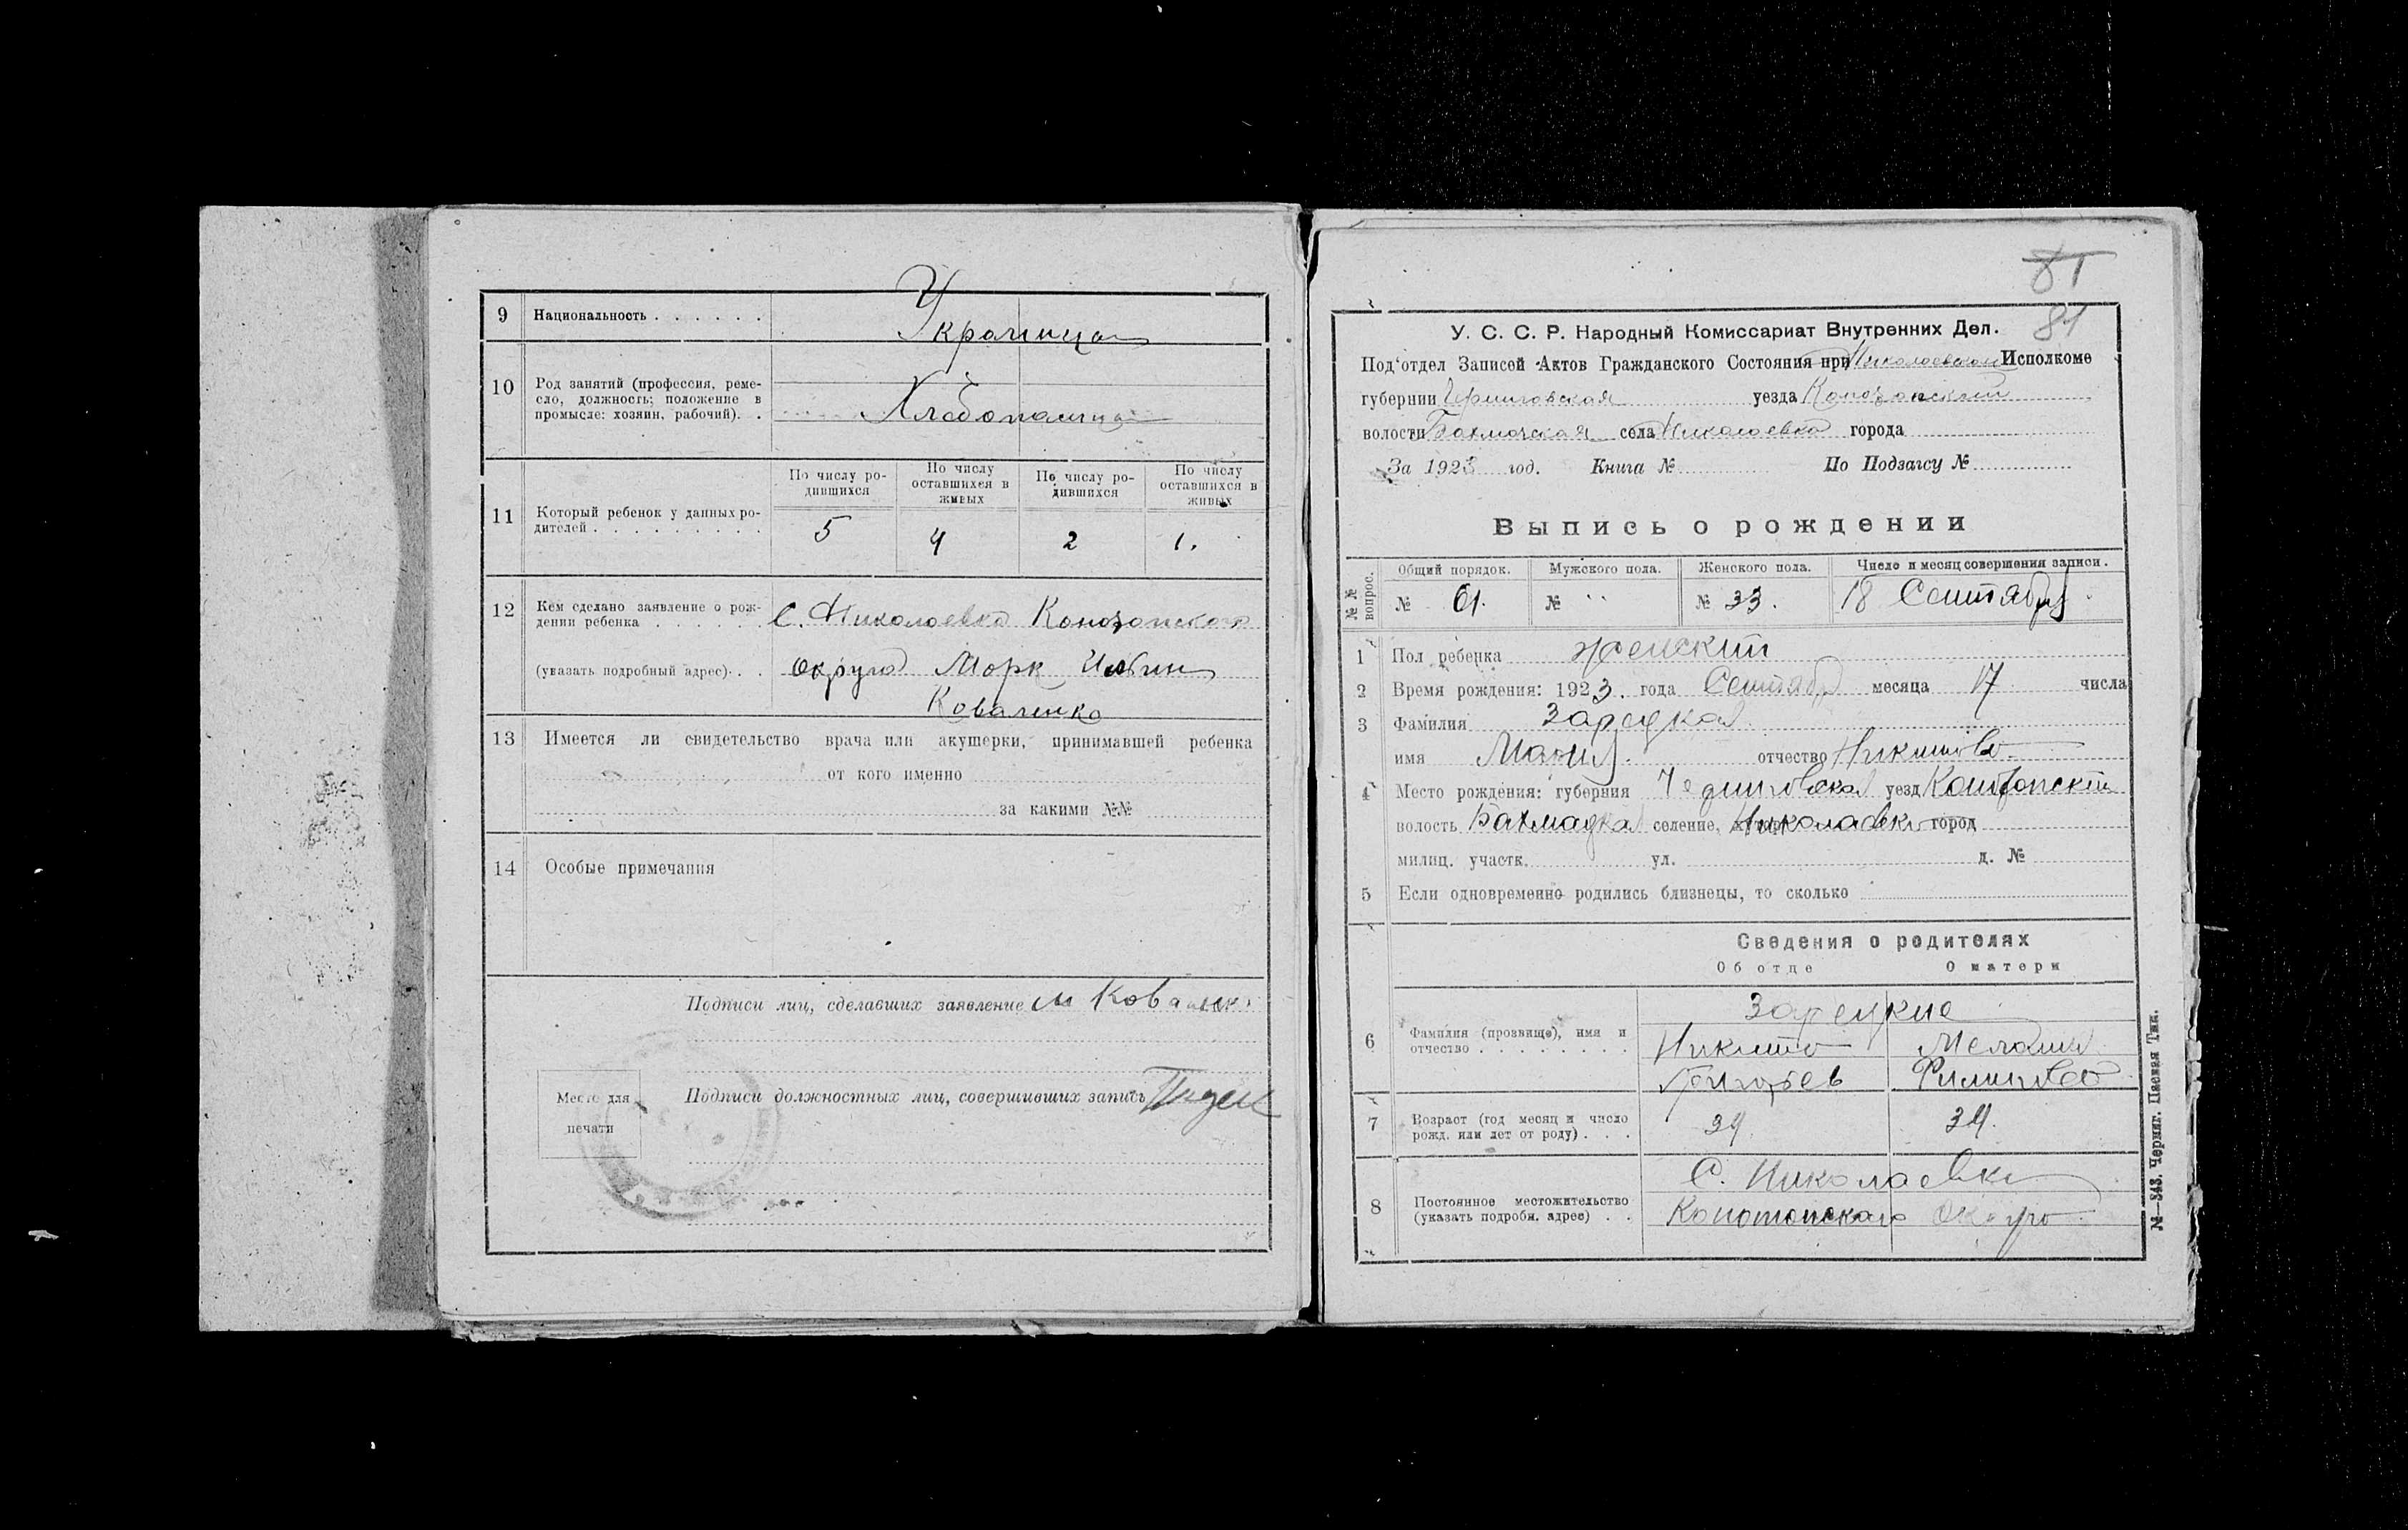 9 Национальность . . . . . .
Украинца
10 Род занятий (профессия, реме-
сло, должность; положение в
промысле: хозяин, рабочий). .
Хлебопашца
По числу ро-
дившихся
По числу
оставшихся в
живых
По числу ро-
дившихся
По числу
оставшихся в
живых
11 Который ребенок у данных ро-
дителей . . . . . . . . .
5 4 2 1.
12 Кем сделано заявление о рож-
дении ребенка . . . . . . С. Николаевка Конотопского
(указать подробный адрес) . . округа Марк Ильин
Коваленко
13 Имеется ли свидетельство врача или акушерки, принимавшей ребенка
от кого именно
за какими №№
14 Особые примечания
Подписи лиц, сделавших заявление М Коваленко
Место для
печати
Подписи должностных лиц, совершивших запись
81
81
У. С. С. Р. Народный Комиссариат Внутренних Дел.
Под‘отдел Записей Актов Гражданского Состояния при Николаевском Исполкоме
губернии Черниговская уезда Конотопский
волости Бахмачская села Николаевка города
За 1923 год. Книга № По Подзагсу №
Выпись о рождении
№№ вопрос.
Общий порядок. Мужского пола. Женского пола. Число и месяц совершения записи.
№ 61. № " № 33. 18 Сентября
1 Пол ребенка женский
2 Время рождения: 1923. года Сентября месяца 17 числа
3 Фамилия Зарецкая
имя Мария. отчество Никитова
4 Место рождения: губерния Черниговская уезд Конотопский
волость Бахмацкая селение, Николаевка город
милиц. участк. ул. д. №
5 Если одновременно родились близнецы, то сколько
Сведения о родителях
Об отце О матери
6 Фамилия (прозвище), имя и
отчество . . . . . . . .
Зарецкие
Никита Мелания
Григорьев Филипова
7 Возраст (год месяц и число
рожд. или лет от роду) . . .
34. 34.
8 Постоянное местожительство
(указать подробн. адрес) . .
С. Николаевка
Конотопского Округа
№—343. Черниг. Цаеная Тип.